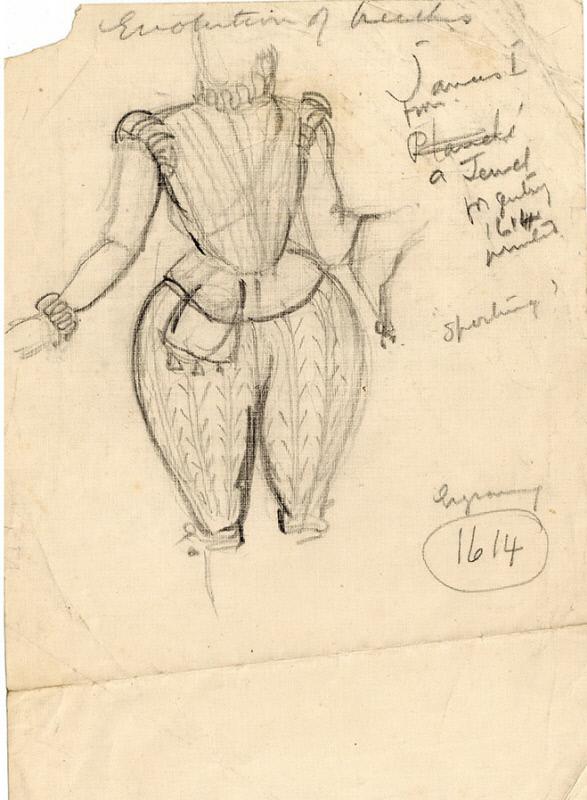 Evolution of breeches
James I
from
Planché
a Jewel
for gentry
1614
'Sporting'
Engraving
1614